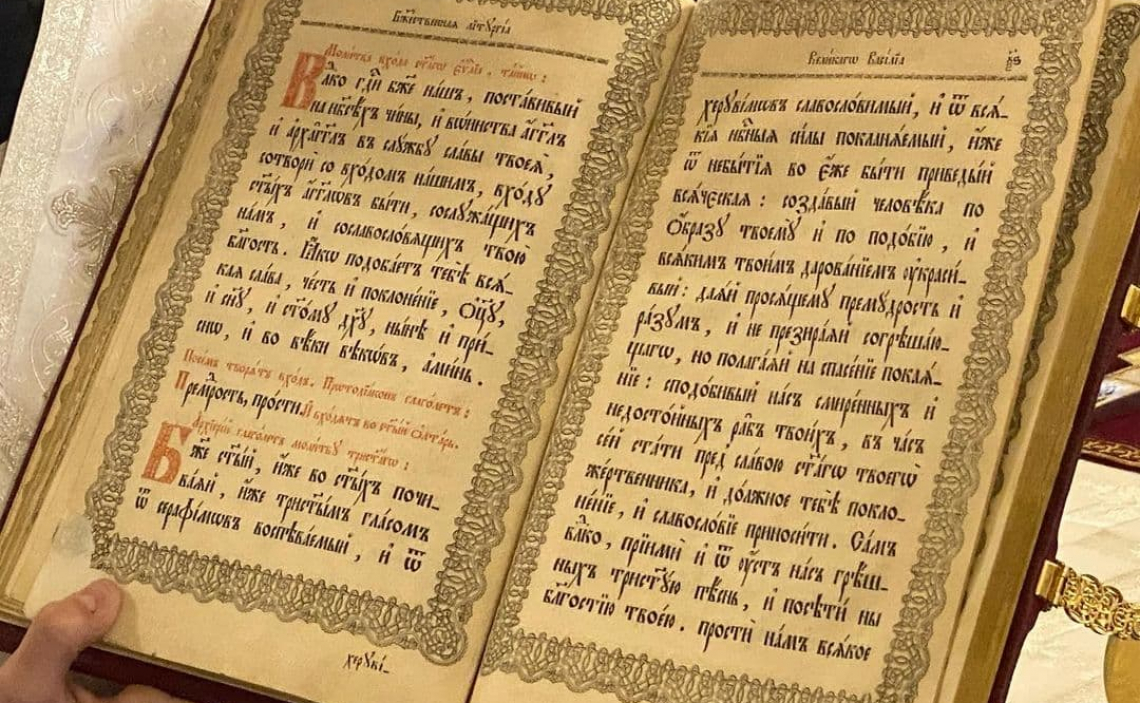 Бжⷭ҇твеннаѧ лїтꙋргі́а
Моли́тва вхо́да ст҃а́гѡ є҆ѵⷢ҇лїа, та́йнѡ:
Влⷣко гдⷭ҇и бж҃е на́шъ, поста́вивый
на нб҃сѣ́хъ чи́ны, и҆ вѡ́инства а҆́гг҃лъ
и҆ а҆рха́гг҃лъ въ слꙋ́жбꙋ сла́вы твоеѧ̀,
сотворѝ со вхо́домъ на́шимъ, вхо́дꙋ
ст҃ы́хъ а҆́гг҃лѡвъ бы́ти, сослꙋжа́щихъ
на́мъ, и҆ сославосло́вѧщихъ твою̀
бл҃гость. Ꙗ҆́кѡ подоба́етъ тебѣ̀ всѧ́_
каѧ сла́ва, че́сть и҆ поклоне́нїе, Ѻ҆ц҃ꙋ̀,
и҆ сн҃ꙋ, и҆ ст҃о́мꙋ дх҃ꙋ, ны́нѣ и҆ при́_
снѡ, и҆ во вѣ́ки вѣкѡ́въ, а҆ми́нь.
Посе́мъ творѧ́тъ вхо́дъ. Протодїа́конъ глаго́летъ:
Премⷣрость, про́сти. И҆ вхо́дѧтъ во ст҃ы́й ѻ҆лта́рь.
А҆рхїере́й глаго́летъ моли́твꙋ трист҃а́гѡ:
Бж҃е ст҃ы́й, и҆́же во ст҃ы́хъ почи_
ва́ѧй, и҆́же трист҃ы́мъ гла́сомъ
ѿ серафі́мѡвъ воспѣва́емый, и҆ ѿ
херꙋві_
Вели́кагѡ Васі́лїа
херꙋві́мѡвъ славосло́вимый, и҆ ѿ всѧ́_
кїѧ нбⷭ҇ныѧ си́лы покланѧ́емый, и҆́же
ѿ небытїѧ̀ во є҆́же бы́ти приведы́й
всѧ́ческаѧ: созда́вый человѣ́ка по
ѻ҆́бразꙋ твоемꙋ̀ и҆ по подо́бїю, и҆
всѧ́кимъ твои́мъ дарова́нїемъ ᲂу҆краси́_
вый: даѧ́й просѧ́щемꙋ премꙋ́дрость и҆
ра́зꙋмъ, и҆ не презира́ѧй согрѣша́ю_
щагѡ, но полага́ѧй на спасе́нїе покаѧ́_
нїе: сподо́бивый на́съ смире́нныхъ и҆
недосто́йныхъ ра̑бъ твои́хъ, въ ча́съ
се́й ста́ти пред̾ сла́вою ст҃а́гѡ твоегѡ̀
же́ртвенника, и҆ до́лжное тебѣ̀ покло_
не́нїе, и҆ славосло́вїе приноси́ти. Са́мъ
влⷣко, прїимѝ и҆ ѿ ᲂу҆́стъ на́съ грѣ́ш_
ныхъ трист҃ꙋ́ю пѣ́снь, и҆ посѣтѝ ны̀
бл҃гостїю твое́ю. простѝ на́мъ всѧ́кое